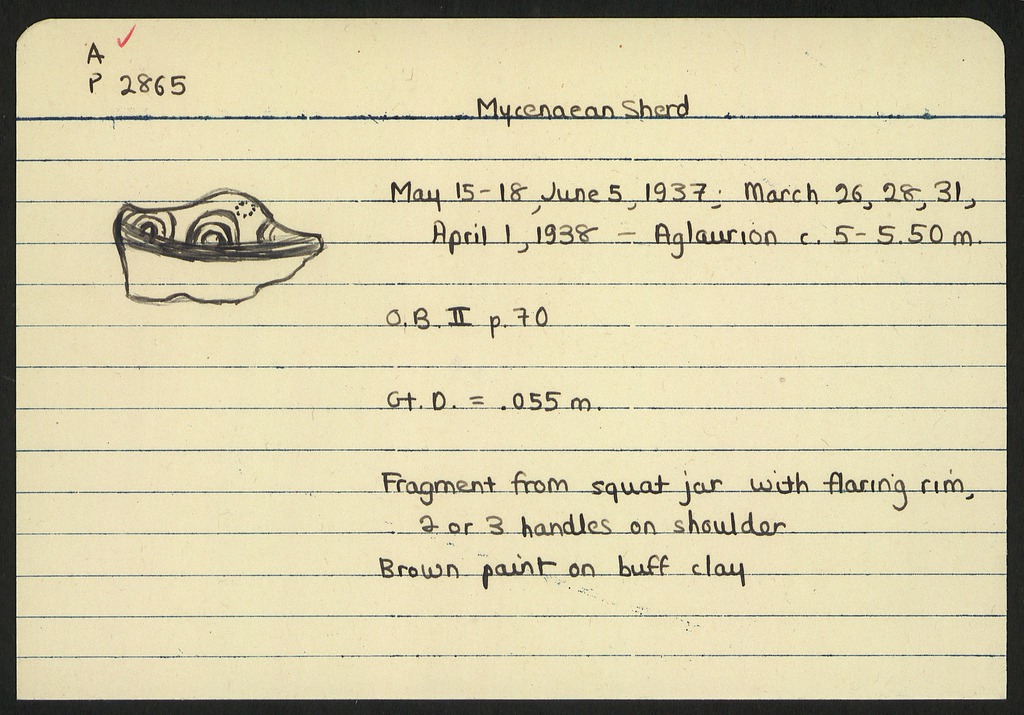 A
P 2865
Mycenaean Sherd
May 15-18, June 5, 1937; March 26, 28, 31,
April 1, 1938 - Aglaurion c. 5-5.50 m.
O.B. II p. 70
Gt. D. = .055 m.
Fragment from squat jar with flaring rim,
2 or 3 handles on shoulder
Brown paint on buff clay